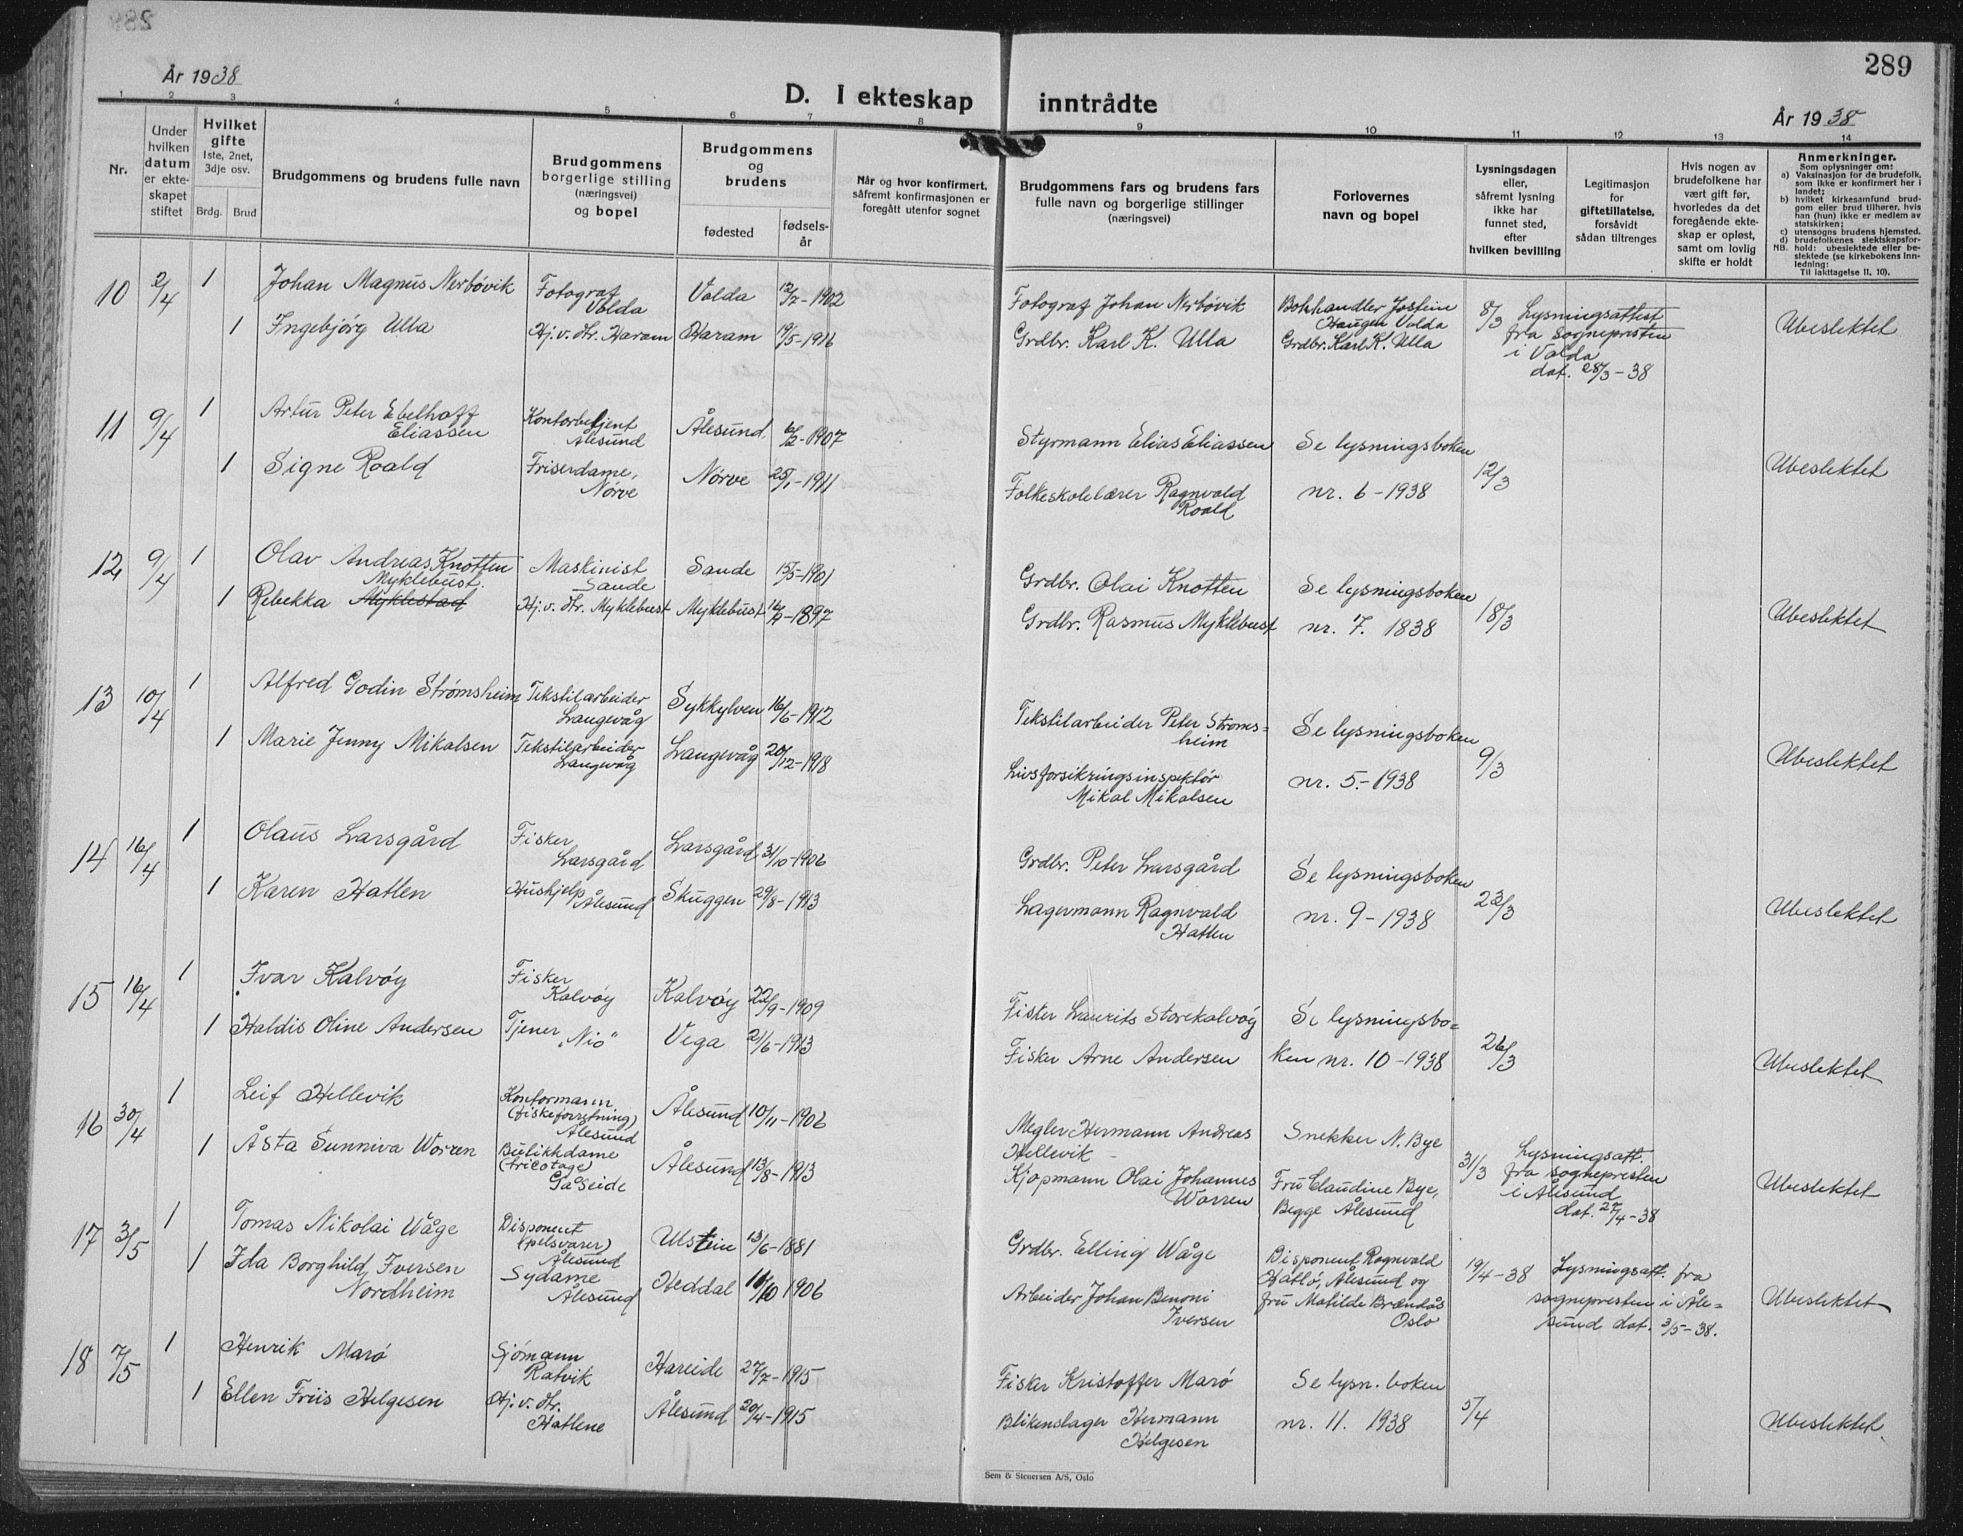 289
År 1938
D. I ekteskap inntrådte
År 1938
1 2 3 4 5 6 7 8 9 10 11 12 13 14
Nr.
Under hvilken datum er ekteskapet stiftet
Hvilket gifte
1ste, 2net, 3dje osv.
Brdg. Brud
Brudgommens og brudens fulle navn
Brudgommens borgerlige stilling (næringsvei) og bopel
Brudgommens og brudens
fødested
fødselsår
Når og hvor konfirmert, såfremt konfirmasjonen er foregått utenfor sognet
Brudgommens fars og brudens fars fulle navn og borgerlige stillinger (næringsvei)
Forlovernes navn og bopel
Lysningsdagen eller, såfremt lysning ikke har funnet sted, efter hvilken bevilling
Legitimasjon for giftetillatelse, forsåvidt sådan tiltrenges
Hvis nogen av brudefolkene har vært gift før, hvorledes da det foregående ekteskap er opløst, samt om lovlig skifte er holdt
Anmerkninger.
Som oplysninger om:
a) Vaksinasjon for de brudefolk, som ikke er konfirmert her i landet;
b) hvilket kirkesamfund brudgom eller brud tilhører, hvis han (hun) ikke er medlem av statskirken;
c) utensogns brudens hjemsted.
d) brudefolkenes slektskapsforhold: ubeslektede eller beslektede (se kirkebokens Innledning:
NB.
Til iakttagelse II, 10).
10 2/4 1 Johan Magnus Nerbøvik Fotograf Volda Volda 12/2-1902 Fotograf Johan Nerbøvik Bokhandler Jostein Haugen Volda 8/3 Lysningsattest fra sognepresten i Volda dat. 28/3-38 Ubeslektet
1 Ingebjørg Ulla Hj.v. Hr. Haram Haram 19/5-1916 Grdbr. Karl K. Ulla Grdbr. Karl K. Ulla
11 9/4 1 Artur Peter Ebelhoff Eliassen Kontorbetjent Ålesund Ålesund 6/2-1907 Styrmann Elias Eliassen Se lysningsboken 12/3 Ubeslektet
1 Signe Roald Friserdame, Nørve Nørve 25/1-1911 Folkeskolelærer Ragnvald Roald nr. 6-1938
12 9/4 1 Olav Andreas Knotten Maskinist Sande Sande 15/5-1901 Grdbr. Olai Knotten Se lysningsboken 18/3 Ubeslektet
1 Rebekka Myklestad Myklebust Hj.v. Hr. Myklebust Myklebust 1897 Grdbr. Rasmus Myklebust nr. 7. 1838
13 10/4 1 Alfred Godin Strømsheim Tekstilarbeider Langevåg Sykkylven 16/6-1912 Tekstilarbeider Peter Strømsheim Se lysningsboken 9/3 Ubeslektet
1 Marie Jenny Mikalsen Tekstilarbeider Langevåg Langevåg 20/12-1918 Livsforsikringsinspektør Mikal Mikalsen nr. 5.-1938
14 16/4 1 Olaus Larsgård Fisker Larsgård Larsgård 31/10-1906 Grdbr. Peter Larsgård Se lysningsboken 23/3 Ubeslektet
1 Karen Hatlen Huskjelp Ålesund Skuggen 29/8-1913 Lagermann Ragnvald Hatlen nr. 9-1938
15 16/4 1 Ivar Kalvøy Fisker Kalvøy Kalvøy 22/9-1909 Fisker Laurits Storekalvøy Se lysningsbo= 26/3 Ubeslektet
1 Haldis Oline Andersen Tjener „Nio“ Vega 21/6-1913 Fisker Arne Andersen ken nr. 10-1938
16 30/4 1 Leif Hellevik Kontormann (fiskeforretning) Ålesund Ålesund 10/11-1906 Megler Hermann Andreas Hellevik Snekker N. Bye 31/3 Lysningsatt. fra sognepresten i Ålesund dat. 27/4-38 Ubeslektet
1 Åsta Sunniva Worren Butikkdame (tricotage) På Seide Ålesund 13/8-1913 Kjøpmann Olai Johannes Worren Fru Claudine Bye, Begge Ålesund
17 3/5 1 Tomas Nikolai Våge Disponent (pelsvarer) Ålesund Ulstein 13/6-1881 Grdbr. Elling Våge Disponent Ragnvald Hatlø, Ålesund og 19/4-38 Lysningsatt. fra sognepresten i Åle= sund dat. 3/5-38. Ubeslektet
1 Ida Borghild Iversen Nordheim Sydame Ålesund Heddal 11/10 1906 Arbeider Johan Benoni Iversen fru Matilde Brændås Oslo
18 7/5 1 Henrik Marø Sjømann Ratvik Hareide 27/7-1915 Fisker Kristoffer Marø Se lysn. boken 5/4 Ubeslektet.
1 Ellen Friis Helgesen Hj.v. Hr. Hatlene Ålesund 20/4-1915 Blikenslager Hermann Helgesen nr. 11. 1938
Sem & Stenersen A/S, Oslo